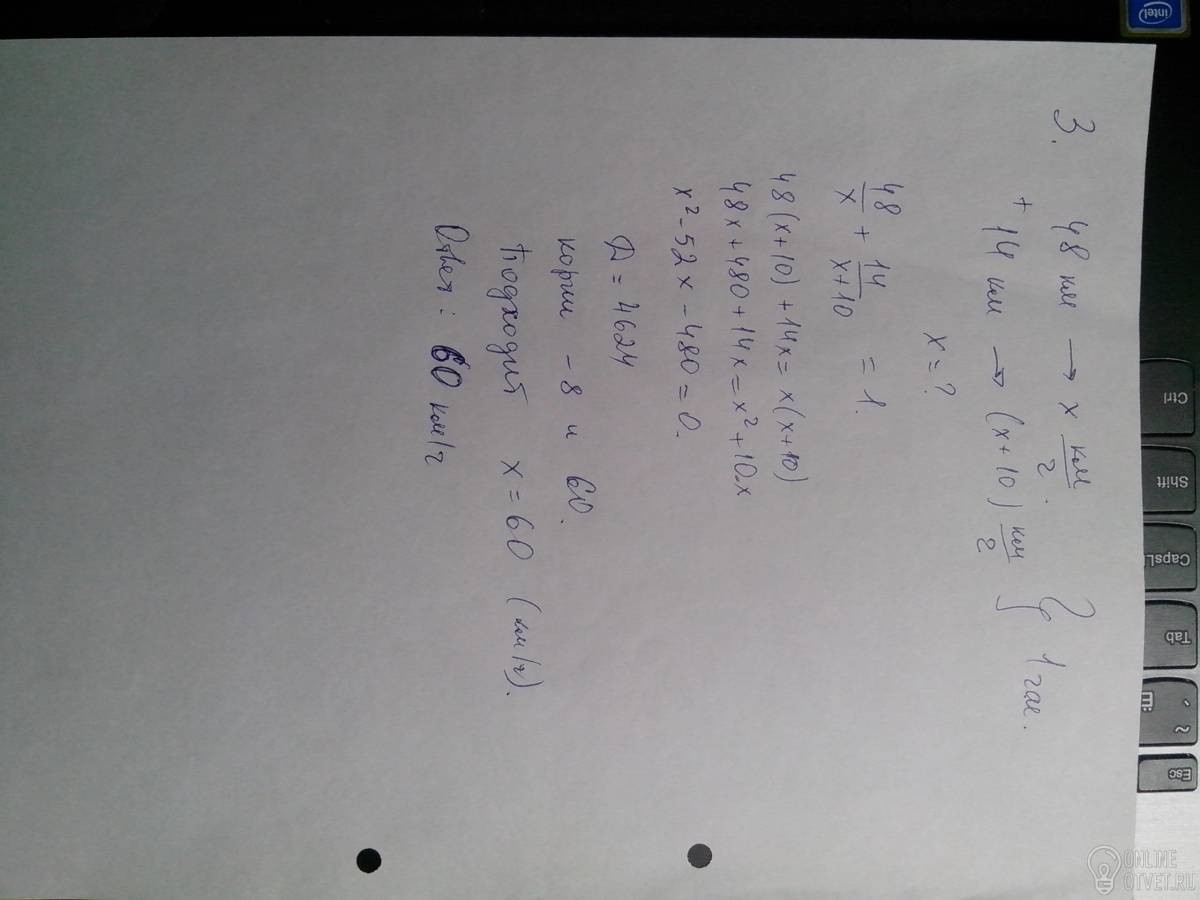 3.
48 км → x км/г.
+ 14 км → (x+10) км/г } 1 час.
x = ?
48/x + 14/(x+10) = 1.
48(x+10)+14x = x(x+10)
48x+480+14x = x²+10x
x² - 52x - 480 = 0.
D = 4624
корни -8 и 60.
Подходит x = 60 (км/ч).
Ответ: 60 км/ч
intel
Ctrl
Shift
CapsL
Tab
~
Esc
ONLINE
OTVET.RU